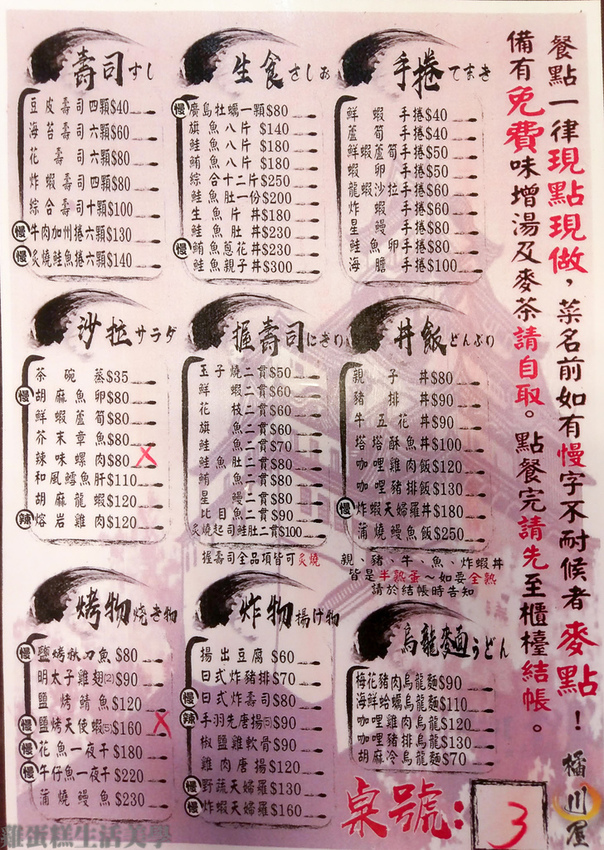 壽司 すし
豆皮壽司四顆$40
海苔壽司六顆$60
花壽司六顆$80
炸蝦壽司四顆$80
綜合壽司十顆$100
慢 牛肉加州捲六顆$130
慢 炙燒鮭魚捲六顆$140
生食 さしみ
慢 廣島牡蠣一顆$80
旗魚八片$140
鮭魚八片$180
鮪魚八片$180
綜合十二片$250
鮭魚肚一份$200
生魚片丼$180
鮭魚肚丼$230
慢 鮪魚蔥花丼$230
鮭魚親子丼$300
手捲 てまき
鮮蝦手捲$40
蘆筍手捲$40
鮮蝦蘆筍手捲$50
蝦卵手捲$50
龍蝦沙拉手捲$60
炸蝦手捲$60
星鰻手捲$80
鮭魚卵手捲$80
海膽手捲$100
沙拉 サラダ
茶碗蒸$35
慢 胡麻魚卵$80
鮮蝦蘆筍$80
芥末章魚$80
辣味螺肉$80
和風鱈魚肝$110
胡麻龍蝦$120
辣 熔岩雞肉$120
握壽司 にぎり
玉子燒二貫$50
鮮蝦二貫$60
花枝二貫$60
旗魚二貫$60
鮭魚二貫$70
鮭魚肚二貫$80
鮪魚二貫$80
星鰻二貫$80
比目魚二貫$90
炙燒起司鮭肚二貫$100
握壽司全品項皆可炙燒
丼飯 どんぶり
親子丼$80
豬排丼$90
牛五花丼$90
塔塔酥魚丼$100
咖哩雞肉飯$120
咖哩豬排飯$130
慢 炸蝦天婦羅丼$180
蒲燒鰻魚飯$250
親、豬、牛、魚、炸蝦丼
皆是半熟蛋~如要全熟
請於結帳時告知
烤物 焼き物
慢 鹽烤秋刀魚$80
明太子雞翅(2)$90
鹽烤鯖魚$120
慢 鹽烤天使蝦(5)$160
慢 花魚一夜干$180
慢 午仔魚一夜干$220
蒲燒鰻魚$230
炸物 揚げ物
揚出豆腐$60
慢 日式炸豬排$70
日式炸壽司$80
辣 手羽先唐揚(5)$90
椒鹽雞軟骨$90
雞肉唐揚$120
慢 野蔬天婦羅$130
慢 炸蝦天婦羅$160
烏龍麵 うどん
梅花豬肉烏龍麵$90
海鮮蛤蠣烏龍麵$110
咖哩雞肉烏龍麵$120
咖哩豬排烏龍麵$130
胡麻冷烏龍麵$70
餐點一律現點現做，菜名前如有慢字不耐候者麥點！
備有免費味增湯及麥茶請自取。點餐完請先至櫃檯結帳。
桌號：3
橘川屋
雞蛋糕生活美學